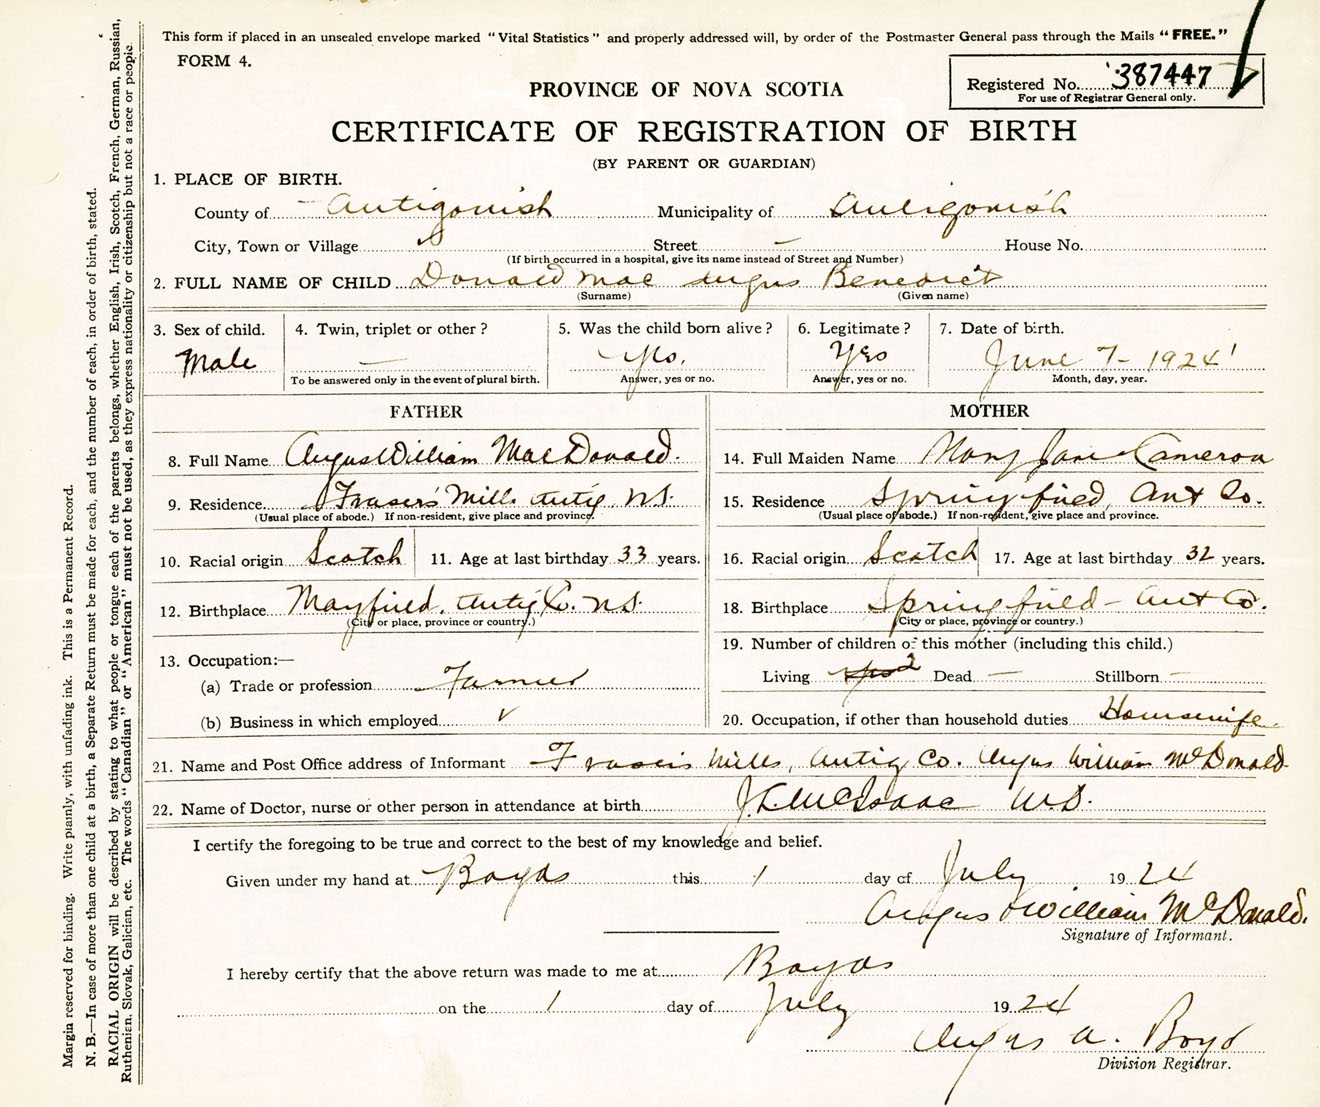 This form if placed in an unsealed envelope marked "Vital Statistics" and properly addressed will, by order of the Postmaster General pass through the Mails "FREE."
FORM 4.
Registered No. 387447
For use of Registrar General only.
PROVINCE OF NOVA SCOTIA
CERTIFICATE OF REGISTRATION OF BIRTH
(BY PARENT OR GUARDIAN)
1. PLACE OF BIRTH.
County of Antigonish Municipality of Antigonish
City, Town or Village Street — House No.
(If birth occurred in a hospital, give its name instead of Street and Number)
2. FULL NAME OF CHILD Donald Mac Angus Benedict
(Surname) (Given name)
3. Sex of child. 4. Twin, triplet or other? 5. Was the child born alive? 6. Legitimate? 7. Date of birth.
Male — Yes. Yes June 7 - 1924
To be answered only in the event of plural birth. Answer, yes or no. Answer, yes or no. Month, day, year.
FATHER
8. Full Name Angus William MacDonald.
9. Residence Fraser's Mills Antig. N.S.
(Usual place of abode.) If non-resident, give place and province.
10. Racial origin Scotch 11. Age at last birthday 33 years.
12. Birthplace Mayfield, Antig Co. N.S.
(City or place, province or country.)
13. Occupation:—
(a) Trade or profession Farmer
(b) Business in which employed
MOTHER
14. Full Maiden Name Mary Jane Cameron
15. Residence Springfield, Ant Co.
(Usual place of abode.) If non-resident, give place and province.
16. Racial origin Scotch 17. Age at last birthday 32 years.
18. Birthplace Springfield - Ant Co.
(City or place, province or country.)
19. Number of children of this mother (including this child.)
Living 2 Dead — Stillborn —
20. Occupation, if other than household duties Housewife.
21. Name and Post Office address of Informant Frasers Mills, Antig Co. Angus William McDonald
22. Name of Doctor, nurse or other person in attendance at birth J.L. McIsaac M.D.
I certify the foregoing to be true and correct to the best of my knowledge and belief.
Given under my hand at Boyds this 1 day of July 1924
Angus William McDonald.
Signature of Informant.
I hereby certify that the above return was made to me at Boyds
on the 1 day of July 1924
Angus A. Boyd
Division Registrar.
Margin reserved for binding. Write plainly, with unfading ink. This is a Permanent Record.
N. B.—In case of more than one child at a birth, a Separate Return must be made for each, and the number of each, in order of birth, stated.
RACIAL ORIGIN will be described by stating to what people or tongue each of the parents belongs, whether English, Irish, Scotch, French, German, Russian,
Ruthenian, Slovak, Galician, etc. The words "Canadian" or "American" must not be used, as they express nationality or citizenship but not a race or people.